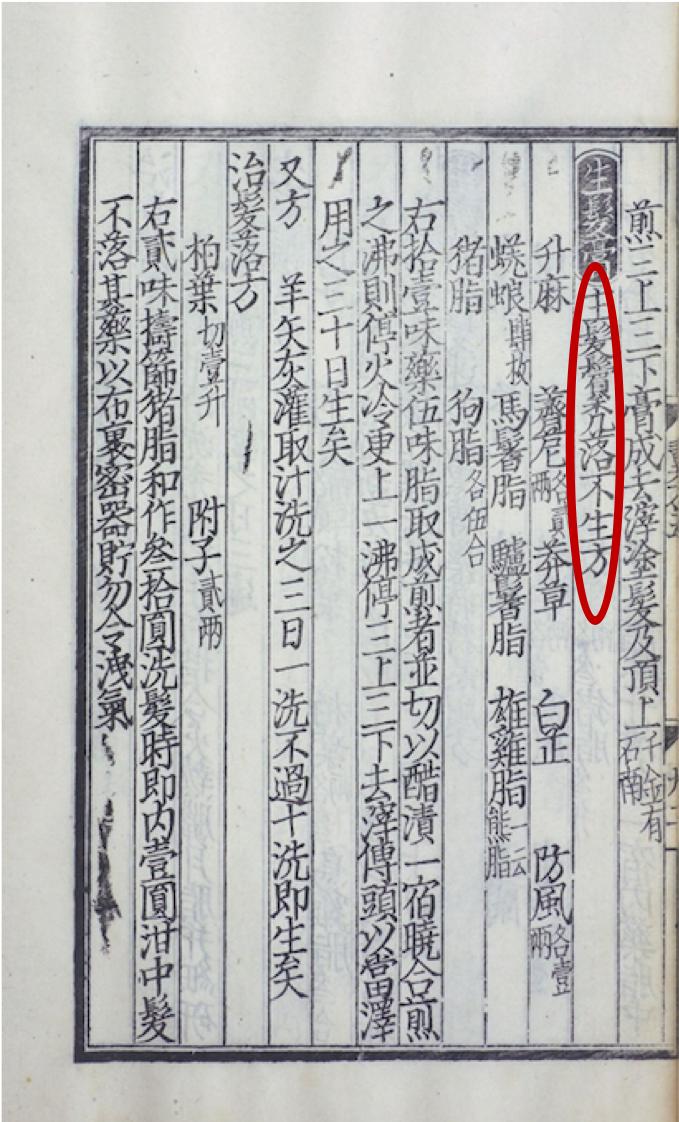 煎三上三下膏成去滓塗髮及頂上有石南
生髮膏主髮鬢禿落不生方
升麻 薺苨各貳兩 莽草 白芷 防風各壹兩
蜣蜋肆枚 馬鬐脂 驢鬐脂 雄雞脂一云熊脂
猪脂 狗脂各伍合
右拾壹味藥伍味脂取成煎者並切以醋漬一宿曉合煎
之沸則停火冷更上一沸停三上三下去滓傅頭以當澤
用之三十日生矣
又方 羊矢灰灌取汁洗之三日一洗不過十洗即生矣
治髮落方
柏葉切壹升 附子貳兩
右貳味擣篩猪脂和作叁拾圓洗髮時即內壹圓泔中髮
不落其藥以布裹密器貯勿令洩氣